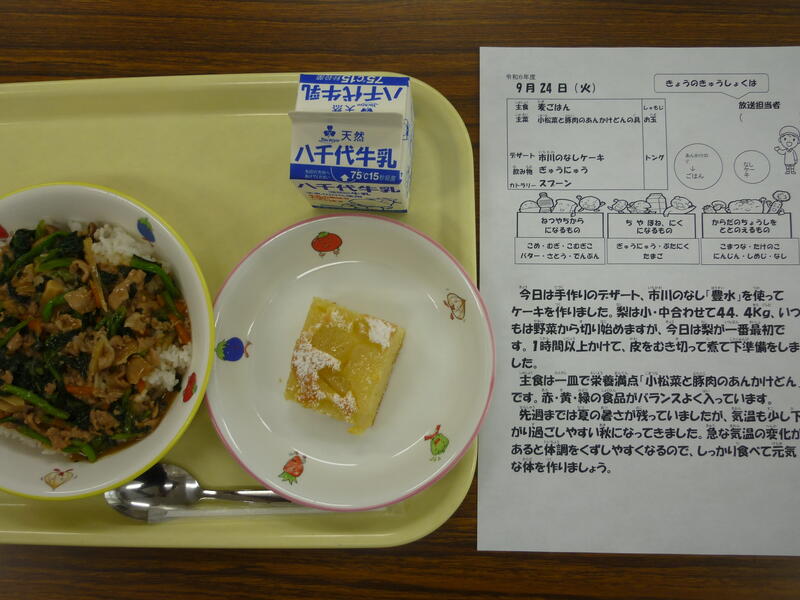 75℃15秒殺菌
八千代牛乳
天然
八千代牛乳
75℃15秒殺菌
八千代牛乳
令和6年度
9月24日(火)
きょうのきゅうしょくは
主食 麦ごはん
しゃもじ
主菜 小松菜と豚肉のあんかけどんの具
お玉
デザート 市川のなしケーキ
トング
飲み物 ぎゅうにゅう
カトラリー スプーン
放送担当者
(
あんかけの
↓
ごはん
なし
ケーキ
ねつやちから
になるもの
ち や ほね、にく
になるもの
からだのちょうしを
ととのえるもの
こめ・むぎ・こむぎこ
バター・さとう・でんぷん
ぎゅうにゅう・ぶたにく
たまご
こまつな・たけのこ
にんじん・しめじ・なし
今日は手作りのデザート、市川のなし「豊水」を使って
ケーキを作りました。梨は小・中合わせて44.4Kg、いつ
もは野菜から切り始めますが、今日は梨が一番最初で
す。1時間以上かけて、皮をむき切って煮て下準備をしま
した。
主食は一皿で栄養満点「小松菜と豚肉のあんかけどん」
です。赤・黄・緑の食品がバランスよく入っています。
先週までは夏の暑さが残っていましたが、気温も少し下
がり過ごしやすい秋になってきました。急な気温の変化が
あると体調をくずしやすくなるので、しっかり食べて元気
な体を作りましょう。